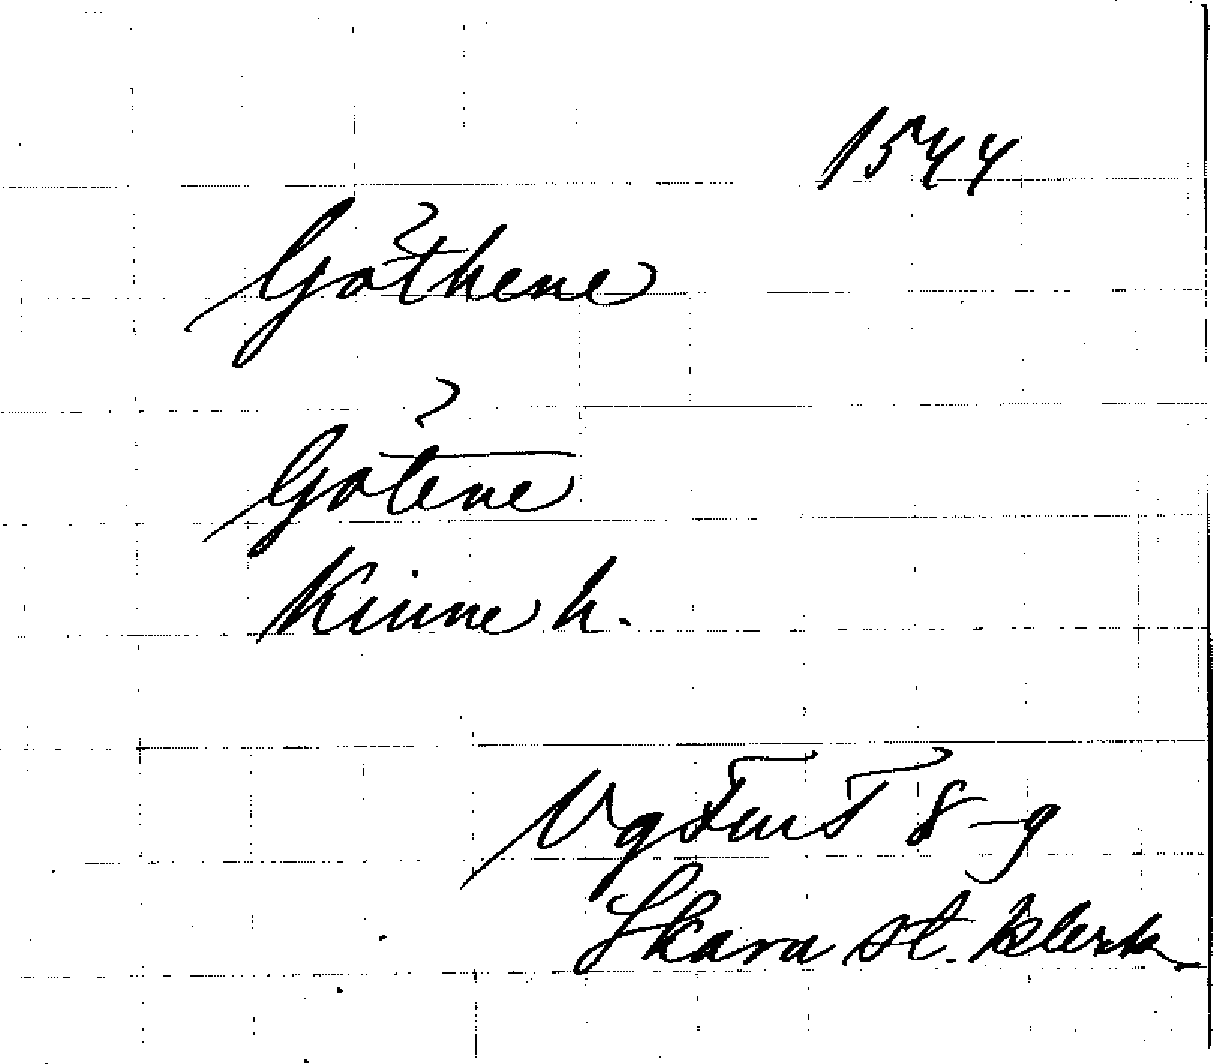 1544
Göthene
Götene
Kinne h.
Vg FmT 8-9
Skara st. klerk